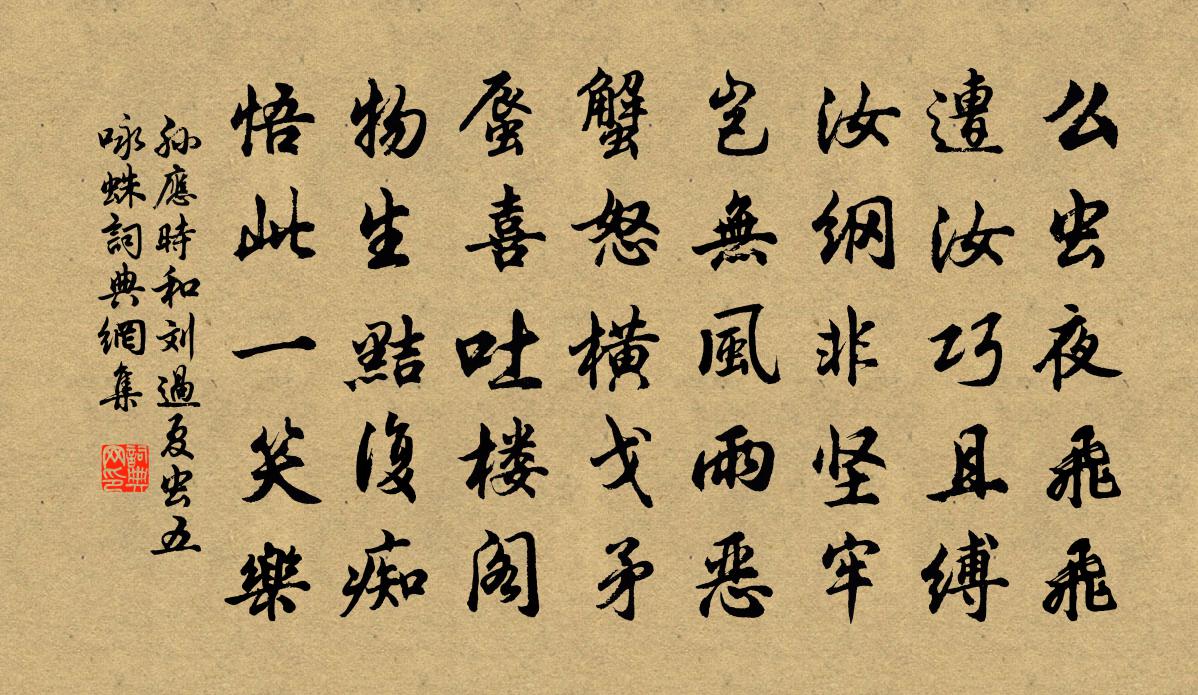 么虫夜飛飛
遭汝巧且縛
汝網非坚牢
岂無風雨惡
蟹怒橫戈矛
蜃喜吐楼阁
物生點復痴
悟此一笑樂
孙應時和刘過夏虫五
咏蛛詞典網集
詞典网印